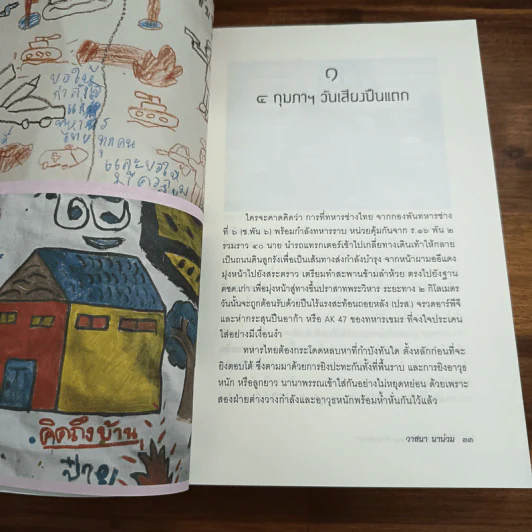 ขอให้
กำลังใจ
แก่
ทหาร
ไทย ทุกคน
และขอให้
มีความ
คิดถึงบ้าน
ป่าย
๑
๔ กุมภาฯ วันเสียงปืนแตก
ใครจะคาดคิดว่า การที่ทหารช่างไทย จากกองพันทหารช่าง
ที่ ๖ (ช.พัน ๖) พร้อมกำลังทหารราบ หน่วยคุ้มกันจาก ร.๑๖ พัน ๒
รวมราว ๔๐ นาย นำรถแทรกเตอร์เข้าไปเกลี่ยทางเดินเท้าให้กลาย
เป็นถนนดินลูกรังเพื่อเป็นเส้นทางส่งกำลังบำรุง จากหน้าผามออีแดง
มุ่งหน้าไปยังสระตราว เตรียมทำสะพานข้ามลำห้วย ตรงไปยังฐาน
ตชด.เก่า เพื่อมุ่งหน้าสู่ทางขึ้นปราสาทพระวิหาร ระยะทาง ๒ กิโลเมตร
วันนั้นจะถูกต้อนรับด้วยปืนไร้แรงสะท้อนถอยหลัง (ปรส.) จรวดอาร์พีจี
และห่ากระสุนปืนอาก้า หรือ AK 47 ของทหารเขมร ที่จงใจประเคน
ใส่อย่างมีเงื่อนงำ
ทหารไทยต้องกระโดดหลบหาที่กำบังทันใด ตั้งหลักก่อนที่จะ
ยิงตอบโต้ ซึ่งตามมาด้วยการยิงปะทะกันทั้งที่พื้นราบ และการยิงอาวุธ
หนัก หรือลูกยาว นานาพรรณเข้าใส่กันอย่างไม่หยุดหย่อน ด้วยเพราะ
สองฝ่ายต่างวางกำลังและอาวุธหนักพร้อมห้ำหั่นกันไว้แล้ว
วาสนา นาน่วม ๒๓